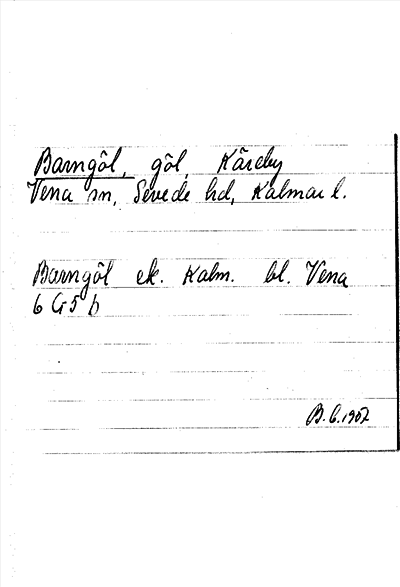 Barngöl, göl, Kärrby
Vena sn, Sevede hd, Kalmar l.
Barngöl ek. Kalm. bl. Vena
6 G 5 b
B.L. 1907